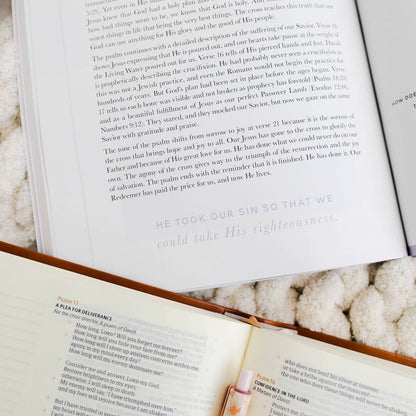 5:21). Yet even in His
Jesus knew that God had a holy plan and
how bad things seem to be, we know that God is holy. And
worst things in life that bring the very best things. The cross teaches that truth that our
God can use anything for His glory and the good of His people.
The psalm continues with a detailed description of the suffering of our Savior. Verse 14
shows Jesus expressing that He is poured out, and our hearts take pause at the weight of
the Living Water poured out for us. Verse 16 tells of His pierced hands and feet. David
is prophetically describing the crucifixion. He had probably never seen a crucifixion as
this was not a Jewish practice, and even the Romans would not begin the practice for
hundreds of years. But God's plan had been set in place before the ages began. Verse
17 tells us each bone was visible and not broken as prophecy has foretold (Psalm 34:20)
and as a beautiful fulfillment of Jesus as our perfect Passover Lamb (Exodus 12:46,
Numbers 9:12). They stared, and they mocked our Savior, but now we gaze on the same
Savior with gratitude and praise.
The tone of the psalm shifts from sorrow to joy at verse 21 because it is the sorrow of
the cross that brings hope and joy to all. Our Jesus has gone to the cross to glorify the
Father and because of His great love for us. He has done what we could never do on our
own. The agony of the cross gives way to the triumph of the resurrection and the joy
of salvation. The psalm ends with the reminder that it is finished. He has done it. Our
Redeemer has paid the price for us, and now He lives.
HE TOOK OUR SIN SO THAT WE
could take His righteousness.
HOW DOE
Psalm 13
A PLEA FOR DELIVERANCE
For the choir director. A psalm of David.
How long, LORD? Will you forget me forever?
How long will you hide your face from me?
How long will I store up anxious concerns within me,
agony in my mind every day?
How long will my enemy dominate me?
Consider me and answer, LORD my God.
Restore brightness to my eyes;
otherwise, I will sleep in death.
My enemy will say, "I have triumphed over him,"
and my foes will rejoice because I am shaken.
But I have trusted in
my heart will
Psalm 15
who does not lend his silver at interest
or take a bribe against the innocent—
the one who does these things will never be shaken.
Psalm 16
CONFIDENCE IN THE LORD
A Miktam of David.